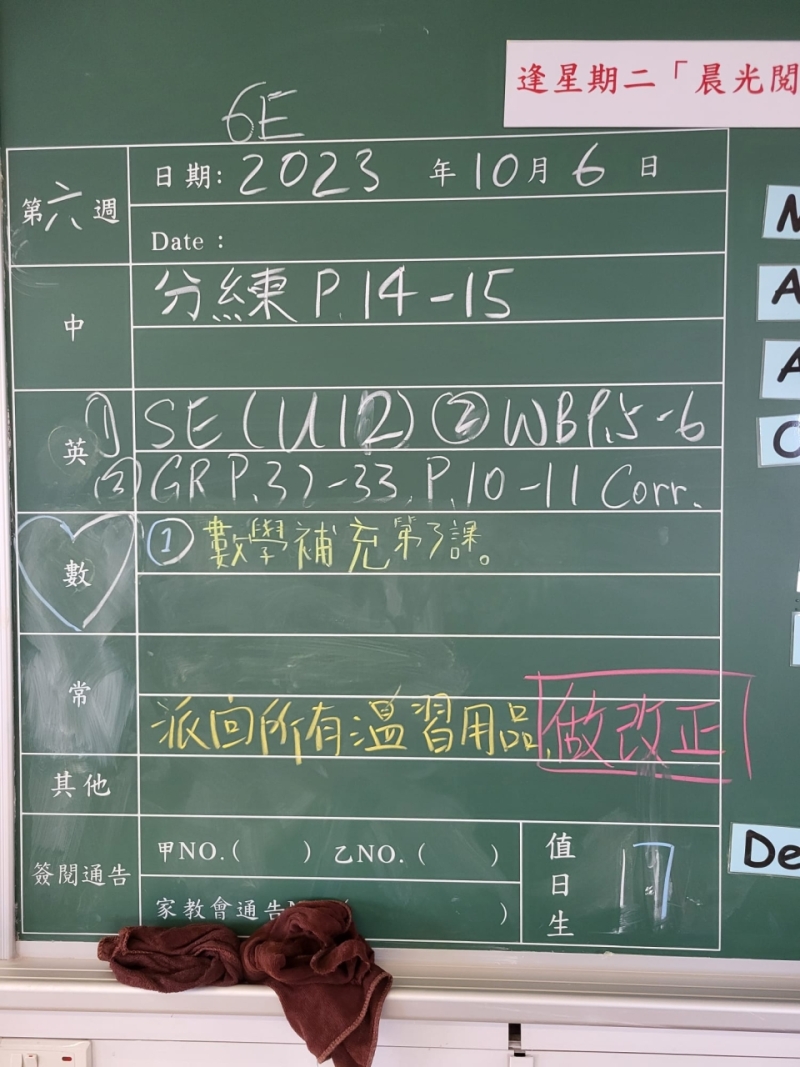 逢星期二「晨光閱
6E
第六週
日期: 2023 年 10 月 6 日
Date :
中
分練 P.14-15
英
① SE (U12) ② WB P.5-6
③ GR P.32-33, P.10-11 Corr.
數
① 數學補充第3課。
常
派回所有溫習用品,做改正
其他
簽閱通告
甲NO.( ) 乙NO.( )
家教會通告
值日生
17
De